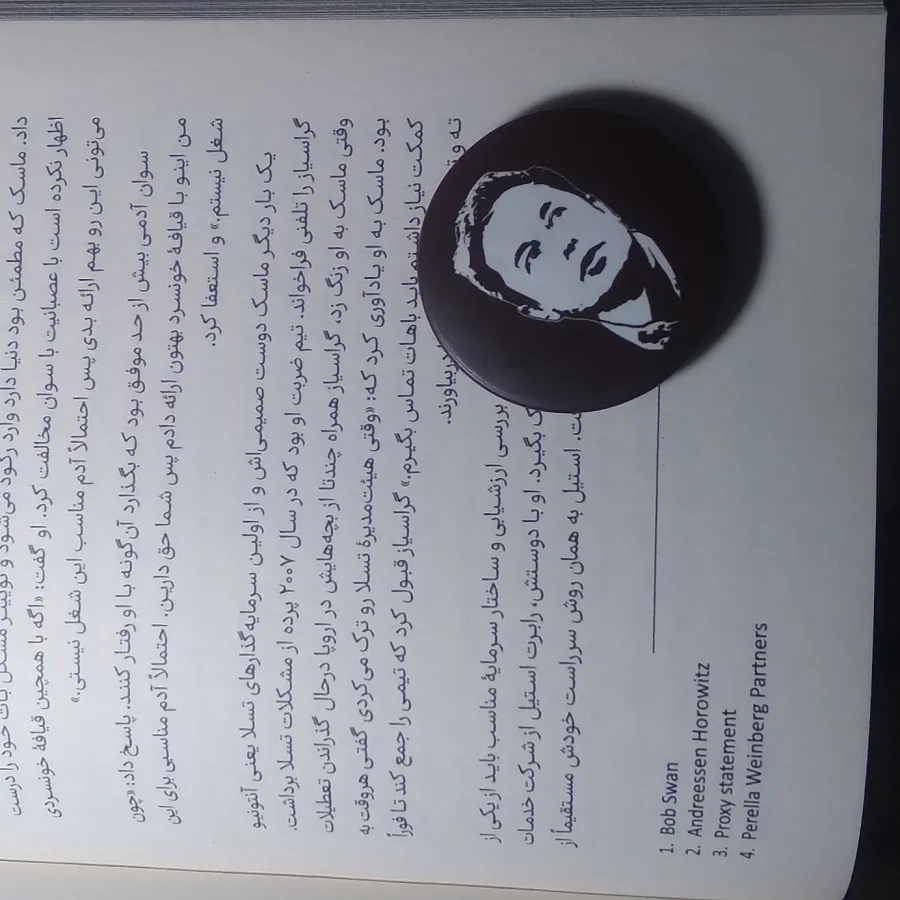 داد. ماسک که مطمئن بود دنیا دارد وارد رکود می‌شود و توییتر مشکل بات خود را درست
اظهار نکرده است با عصبانیت با سوان مخالفت کرد. او گفت: «اگه با همچین قیافهٔ خونسردی
می‌تونی این رو بهم ارائه بدی پس احتمالاً آدم مناسب این شغل نیستی.»
سوان آدمی بیش از حد موفق بود که بگذارد آن‌گونه با او رفتار کنند. پاسخ داد: «چون
من اینو با قیافهٔ خونسرد بهتون ارائه دادم پس شما حق دارین. احتمالاً آدم مناسبی برای این
شغل نیستم.» و استعفا کرد.
یک بار دیگر ماسک دوست صمیمی‌اش و از اولین سرمایه‌گذارهای تسلا یعنی آنتونیو
گراسیاز را تلفنی فراخواند. تیم ضربت او بود که در سال ۲۰۰۷ پرده از مشکلات تسلا برداشت.
وقتی ماسک به او زنگ زد، گراسیاز همراه چندتا از بچه‌هایش در اروپا درحال گذراندن تعطیلات
بود. ماسک به او یادآوری کرد که: «وقتی هیئت‌مدیرهٔ تسلا رو ترک می‌کردی گفتی هروقت به
کمکت نیاز داشتم باید باهات تماس بگیرم.» گراسیاز قبول کرد که تیمی را جمع کند تا فوراً
ته و
دربیاورند.
بررسی ارزشیابی و ساختار سرمایهٔ مناسب باید از یکی از
بگیرد. او با دوستش، رابرت استیل از شرکت خدمات
استیل به همان روش سرراست خودش مستقیماً از
1. Bob Swan
2. Andreessen Horowitz
3. Proxy statement
4. Perella Weinberg Partners